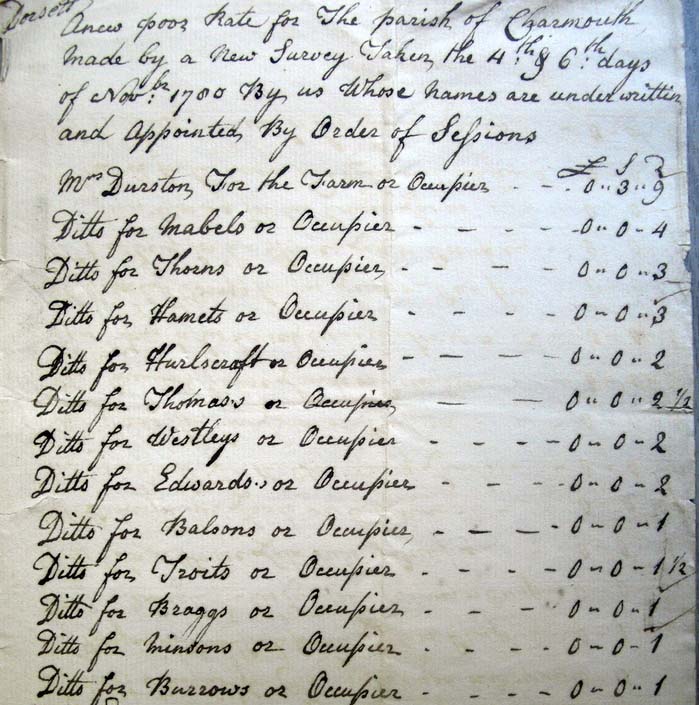 Dorsett
Anew poor Rate for The parish of Charmouth
Made by a New Survey Taken the 4th: & 6th: days
of Novbr: 1780 By us Whose Names are underwritten
and Appointed By Order of Sessions
£ S D
Mrs Durston For the Farm or Occupier - - - 0 " 3 " 9
Ditto for Mabels or Occupier - - - - 0 " 0 - 4
Ditto for Thorns or Occupier - - - - 0 " 0 " 3
Ditto for Hamets or Occupier - - - - 0 " 0 " 3
Ditto for Hurlscroft or Occupier - - - - 0 " 0 " 2
Ditto for Thomas's or Occupier - - - 0 " 0 " 2 1/2
Ditto for Westleys or Occupier - - - - 0 " 0 " 2
Ditto for Edwards's or Occupier - - - - 0 " 0 " 2
Ditto for Balsons or Occupier - - - - 0 " 0 " 1
Ditto for Troits or Occupier - - - - 0 " 0 " 1 1/2
Ditto for Braggs or Occupier - - - - 0 " 0 " 1
Ditto for Minsons or Occupier - - - - 0 " 0 - 1
Ditto for Burrows or Occupier - - - - 0 " 0 " 1